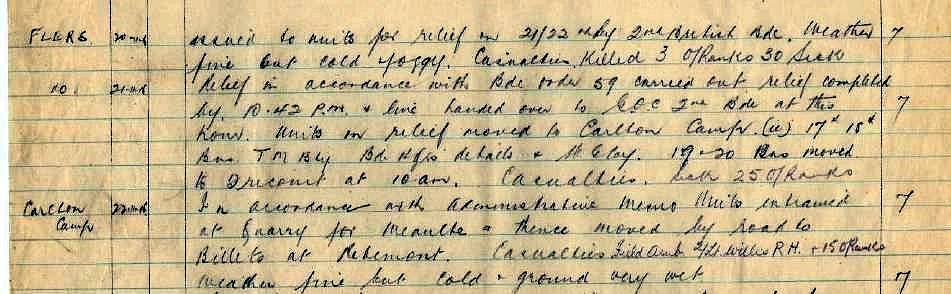 FLERS. 20th issued to units for relief on 21/22nd by 2nd British Bde. Weather 7
fine but cold & foggy. Casualties, Killed 3 O/Ranks 30 Sick
do. 21st Relief in accordance with Bde order 59 carried out relief completed
by 10.42 P.M. & line handed over to G.O.C 2nd Bde at this 7
hour. Units on relief moved to Carlton Camp. (ie) 17th 18th
Bns. T M Bty Bde Hqrs details & M.G. Coy. 19 & 20 Bns moved
to Fricourt at 10 am. Casualties. Sick 25 O/Ranks
Carlton Camp 22nd In accordance with Administrative Memo Units entrained 7
at Quarry for Meaulte & thence moved by road to
Billets at Ribemont. Casualties Field Amb 2/Lt R.H. + 15 O/Ranks
Weather fine but cold & ground very wet 7